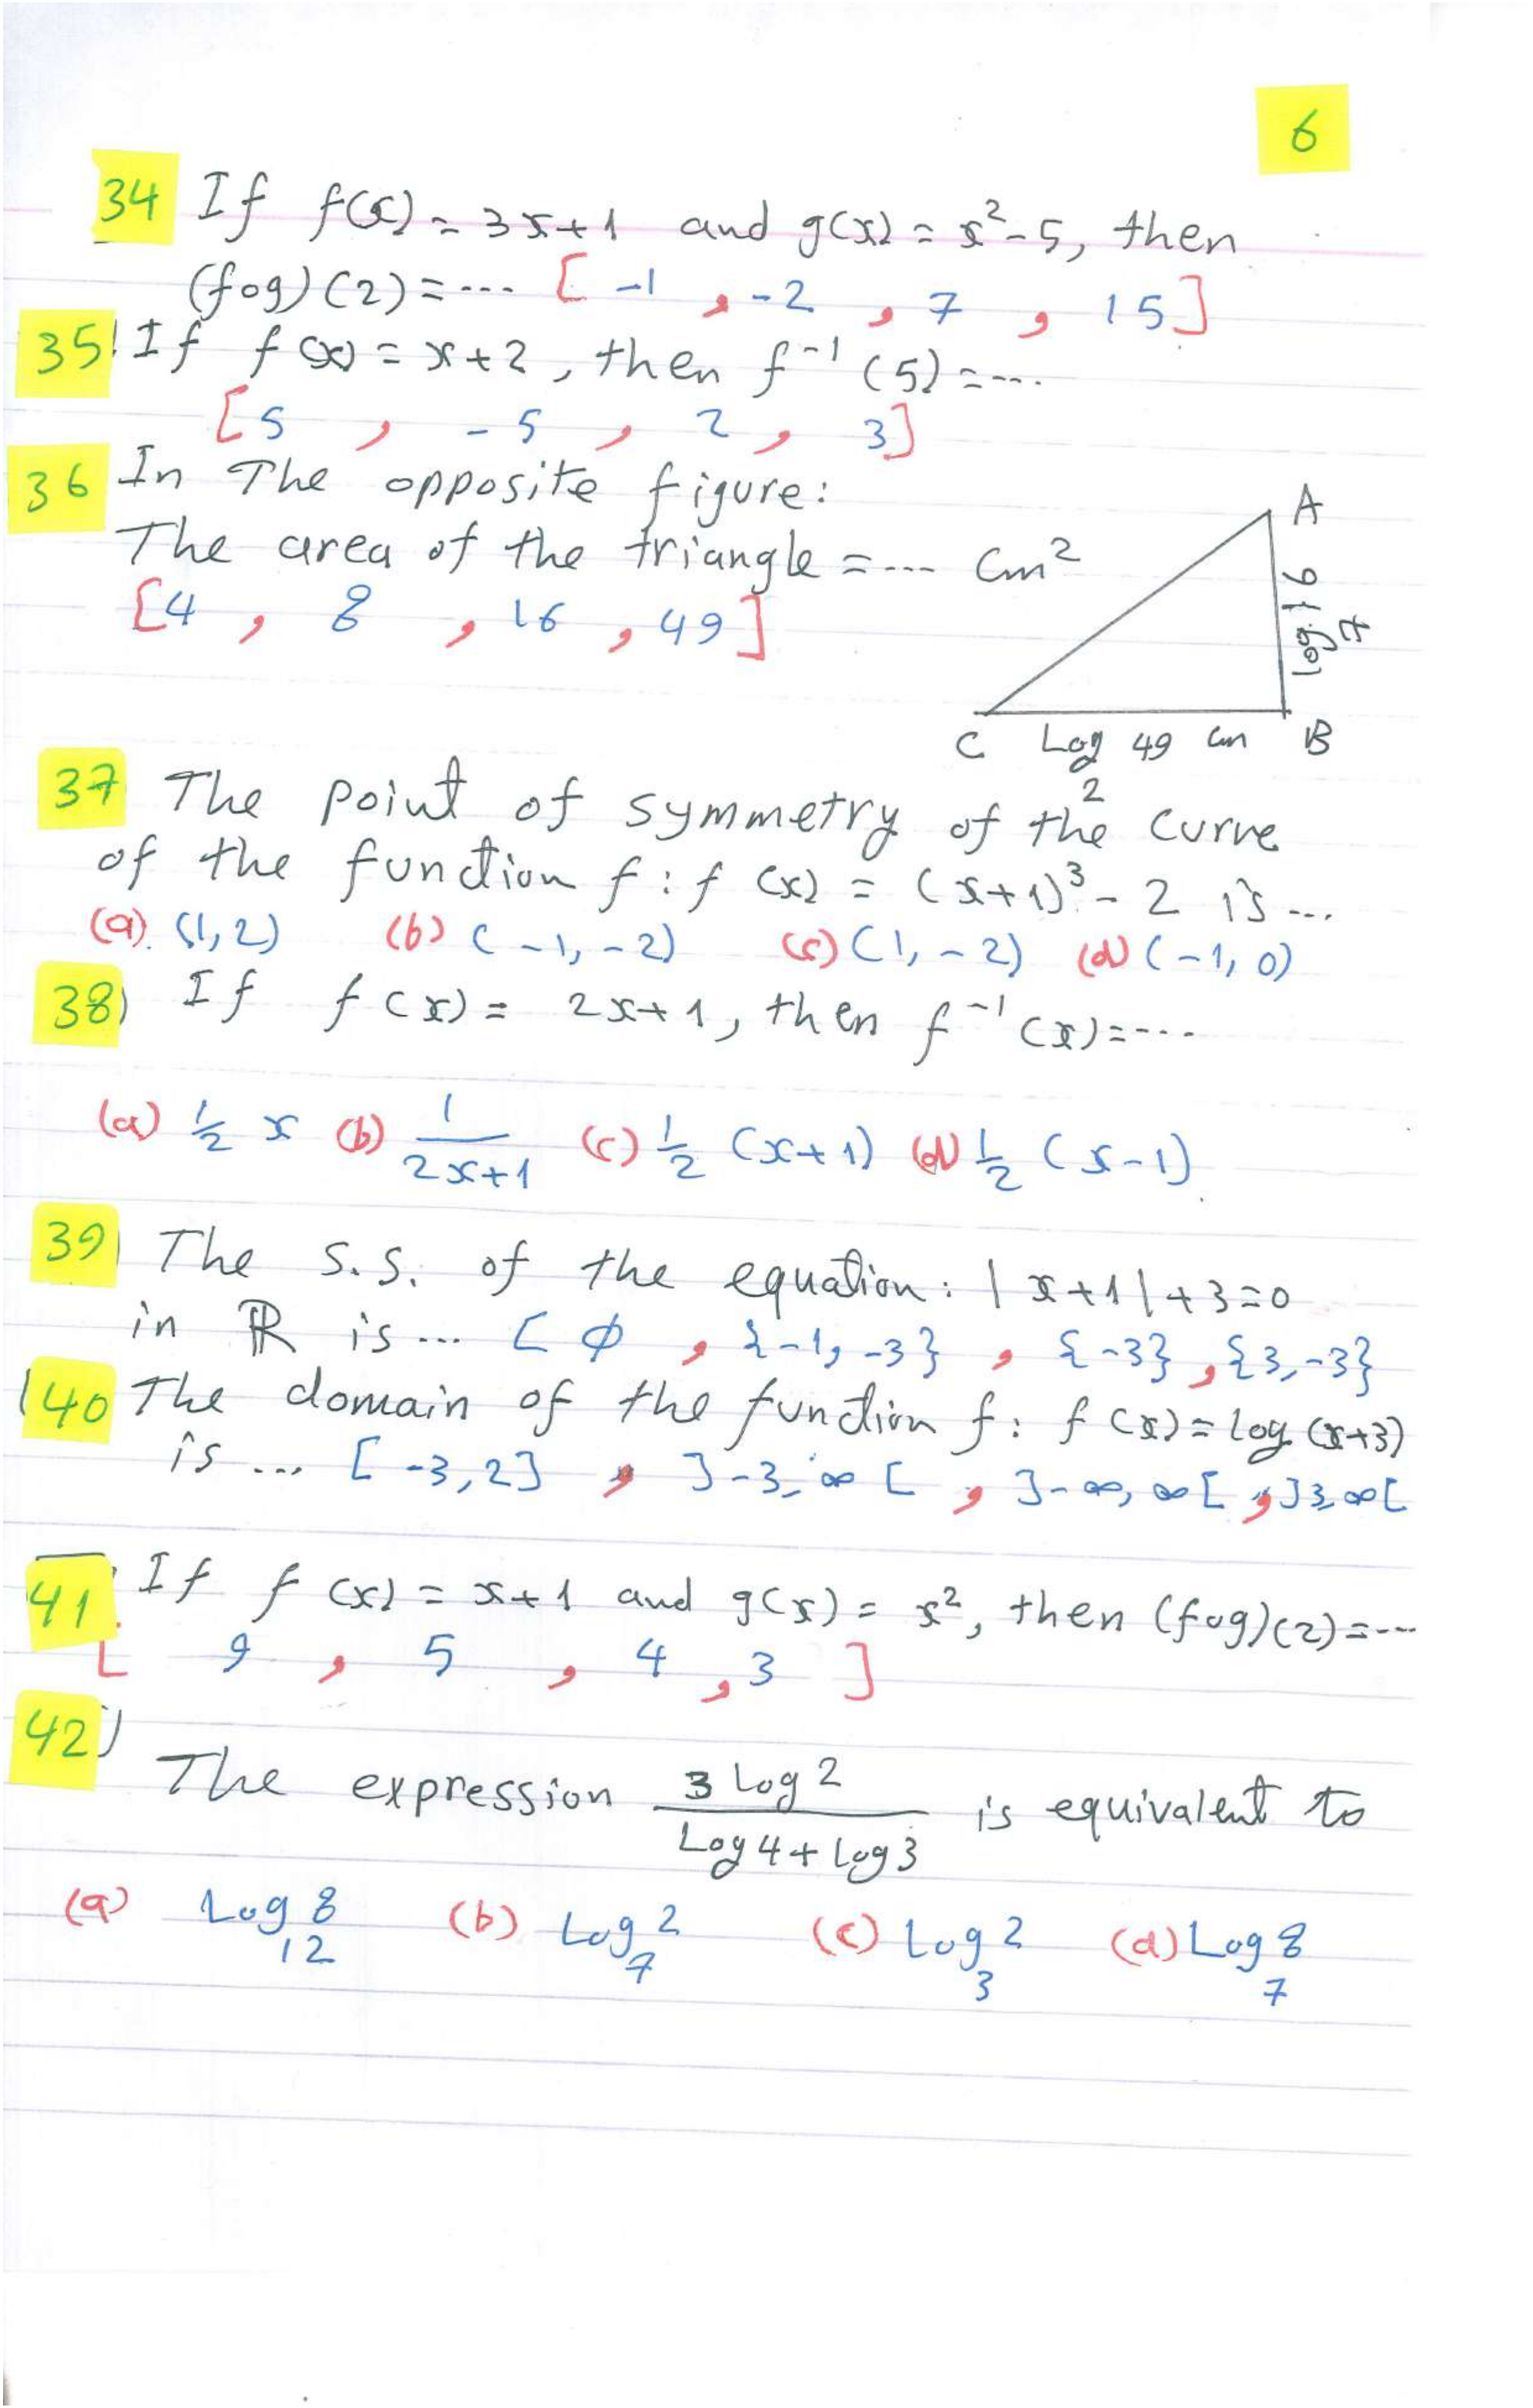 6
34 If f(x) = 3x+1 and g(x) = x²-5, then
(fog)(2) = ... [ -1 , -2 , 7 , 15 ]
35) If f(x) = x+2, then f⁻¹(5) = ...
[ 5 , -5 , 2 , 3 ]
36 In The opposite figure:
The area of the triangle = ... Cm²
[ 4 , 8 , 16 , 49 ]
A
log₇ 16
C Log₂ 49 Cm B
37 The point of symmetry of the curve
of the function f : f(x) = (x+1)³ - 2 is ...
(a) (1,2) (b) (-1,-2) (c) (1,-2) (d) (-1,0)
38) If f(x) = 2x+1, then f⁻¹(x) = ...
(a) ½ x (b) 1/(2x+1) (c) ½ (x+1) (d) ½ (x-1)
39) The S.S. of the equation: |x+1|+3=0
in ℝ is ... [ ϕ , {-1,-3} , {-3} , {3,-3}
40 The domain of the function f: f(x) = log (x+3)
is ... [-3,2] , ]-3,∞[ , ]-∞,∞[ , ]3,∞[
41 If f(x) = x+1 and g(x) = x², then (fog)(2) = ...
[ 9 , 5 , 4 , 3 ]
42)
The expression 3 Log 2 / (Log 4 + Log 3) is equivalent to
(a) Log₁₂ 8 (b) Log₇ 2 (c) Log₃ 2 (d) Log₇ 8